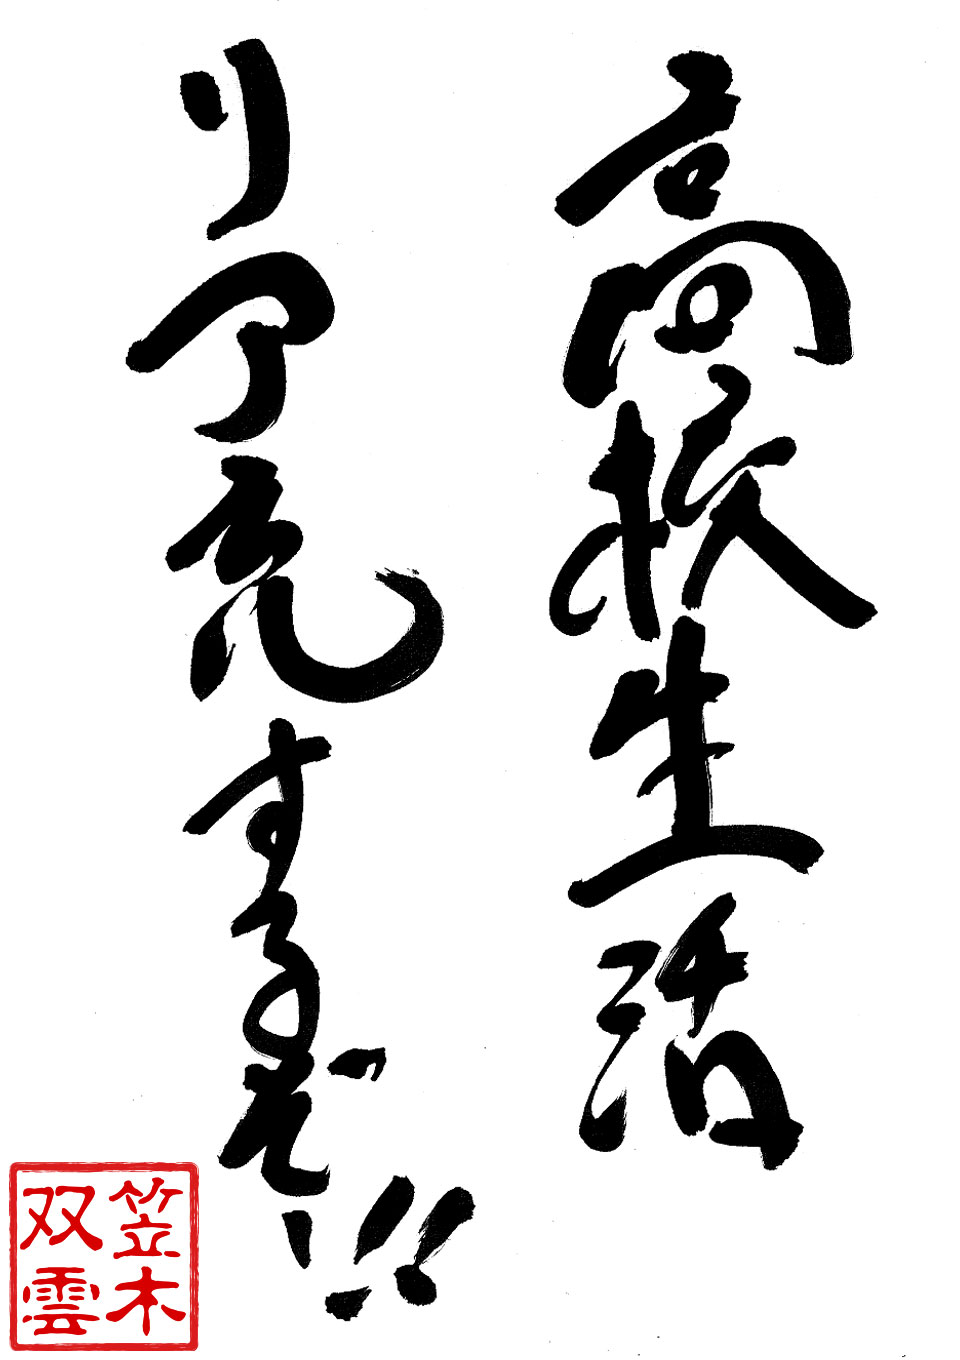 高校生活
リア充するぞ!!
笠木
双雲